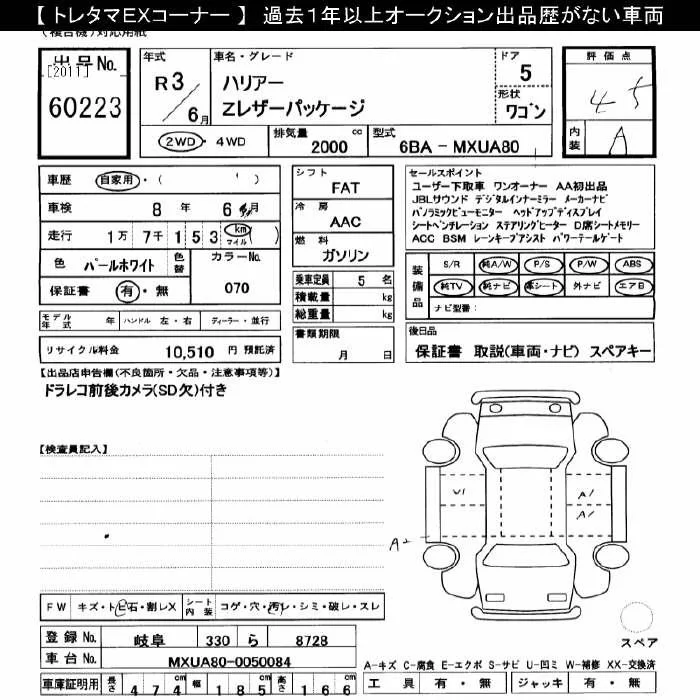 【 トレタマEXコーナー 】 過去1年以上オークション出品歴がない車両
(複合機)対応用紙
出品No.
[2011]
60223
年式
R3/6月
車名・グレード
ハリアー
Zレザーパッケージ
ドア
5
形状
ワゴン
評価点
4.5
内装
A
2WD・4WD
排気量 2000 cc
型式 6BA - MXUA80
車歴 自家用・( )
車検 8 年 6 月
走行 1万 7千 1 5 3 km マイル
色 パールホワイト 色替 カラーNo.
保証書 有・無 070
シフト
FAT
冷房
AAC
燃料
ガソリン
乗車定員 5 名
積載量 kg
総重量 kg
書類期限
月 日
セールスポイント
ユーザー下取車 ワンオーナー AA初出品
JBLサウンド デジタルインナーミラー メーカーナビ
パノラミックビューモニター ヘッドアップディスプレイ
シートベンチレーション ステアリングヒーター D席シートメモリー
ACC BSM レーンキープアシスト パワーテールゲート
装備品
S/R 純A/W P/S P/W ABS
純TV 純ナビ 革シート 外ナビ エアB
ナビ型番:
モデル年式 年 ハンドル 左・右 ディーラー・並行
リサイクル料金 10,510 円 預託済
後日品
保証書 取説(車両・ナビ) スペアキー
【出品店申告欄(不良箇所・欠品・注意事項等)】
ドラレコ前後カメラ(SD欠)付き
【検査員記入】
W1
A1
A1
A2
FW キズ・トビ石・割レX シート内装 コゲ・穴・汚レ・シミ・破レ・スレ
スペア
登録No. 岐阜 330 ら 8728
車台No. MXUA80-0050084
A-キズ C-腐食 E-エクボ S-サビ U-凹ミ W-補修 XX-交換済
車庫証明用 長さ 4 7 4 cm 幅 1 8 5 cm 高さ 1 6 6 cm
工具 有・無 ジャッキ 有・無